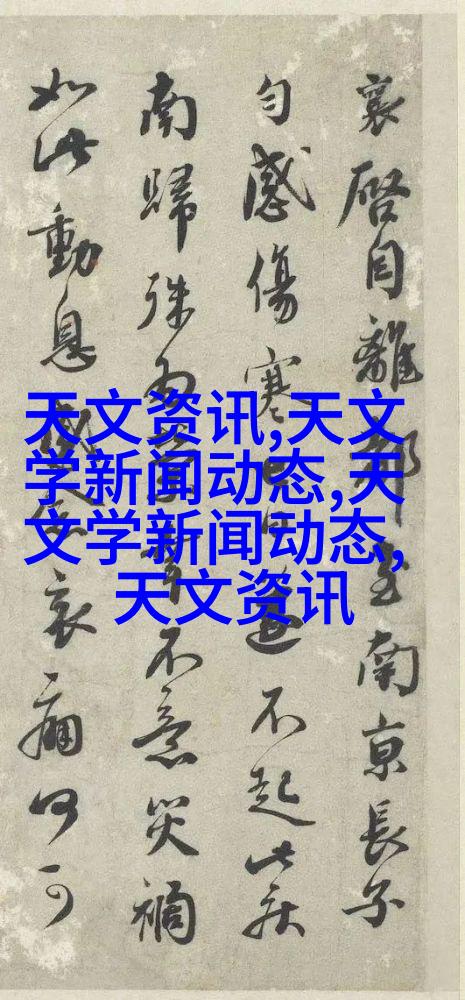 襄啓自離都至南京長子
勻感傷寒遂不起此疾
南歸殊為幸不意災禍
如此動息哀痛何可
天文资讯,天文
学新闻动态,天
文学新闻动态,
天文资讯